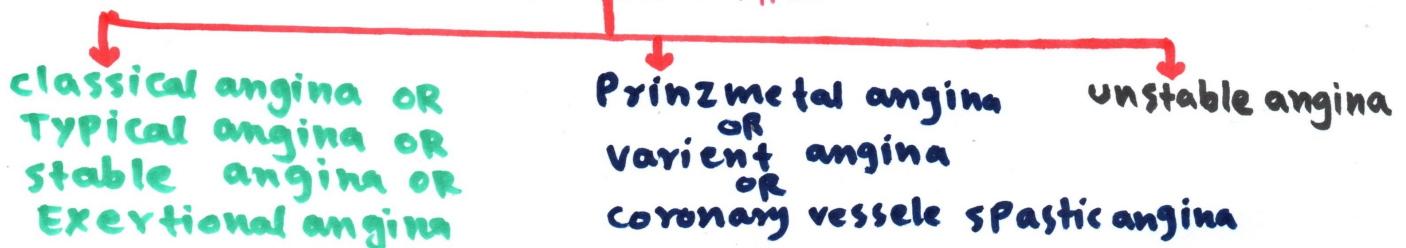 classical angina OR
Typical angina OR
stable angina OR
Exertional angina
Prinzmetal angina
OR
varient angina
OR
coronary vessele spastic angina
unstable angina